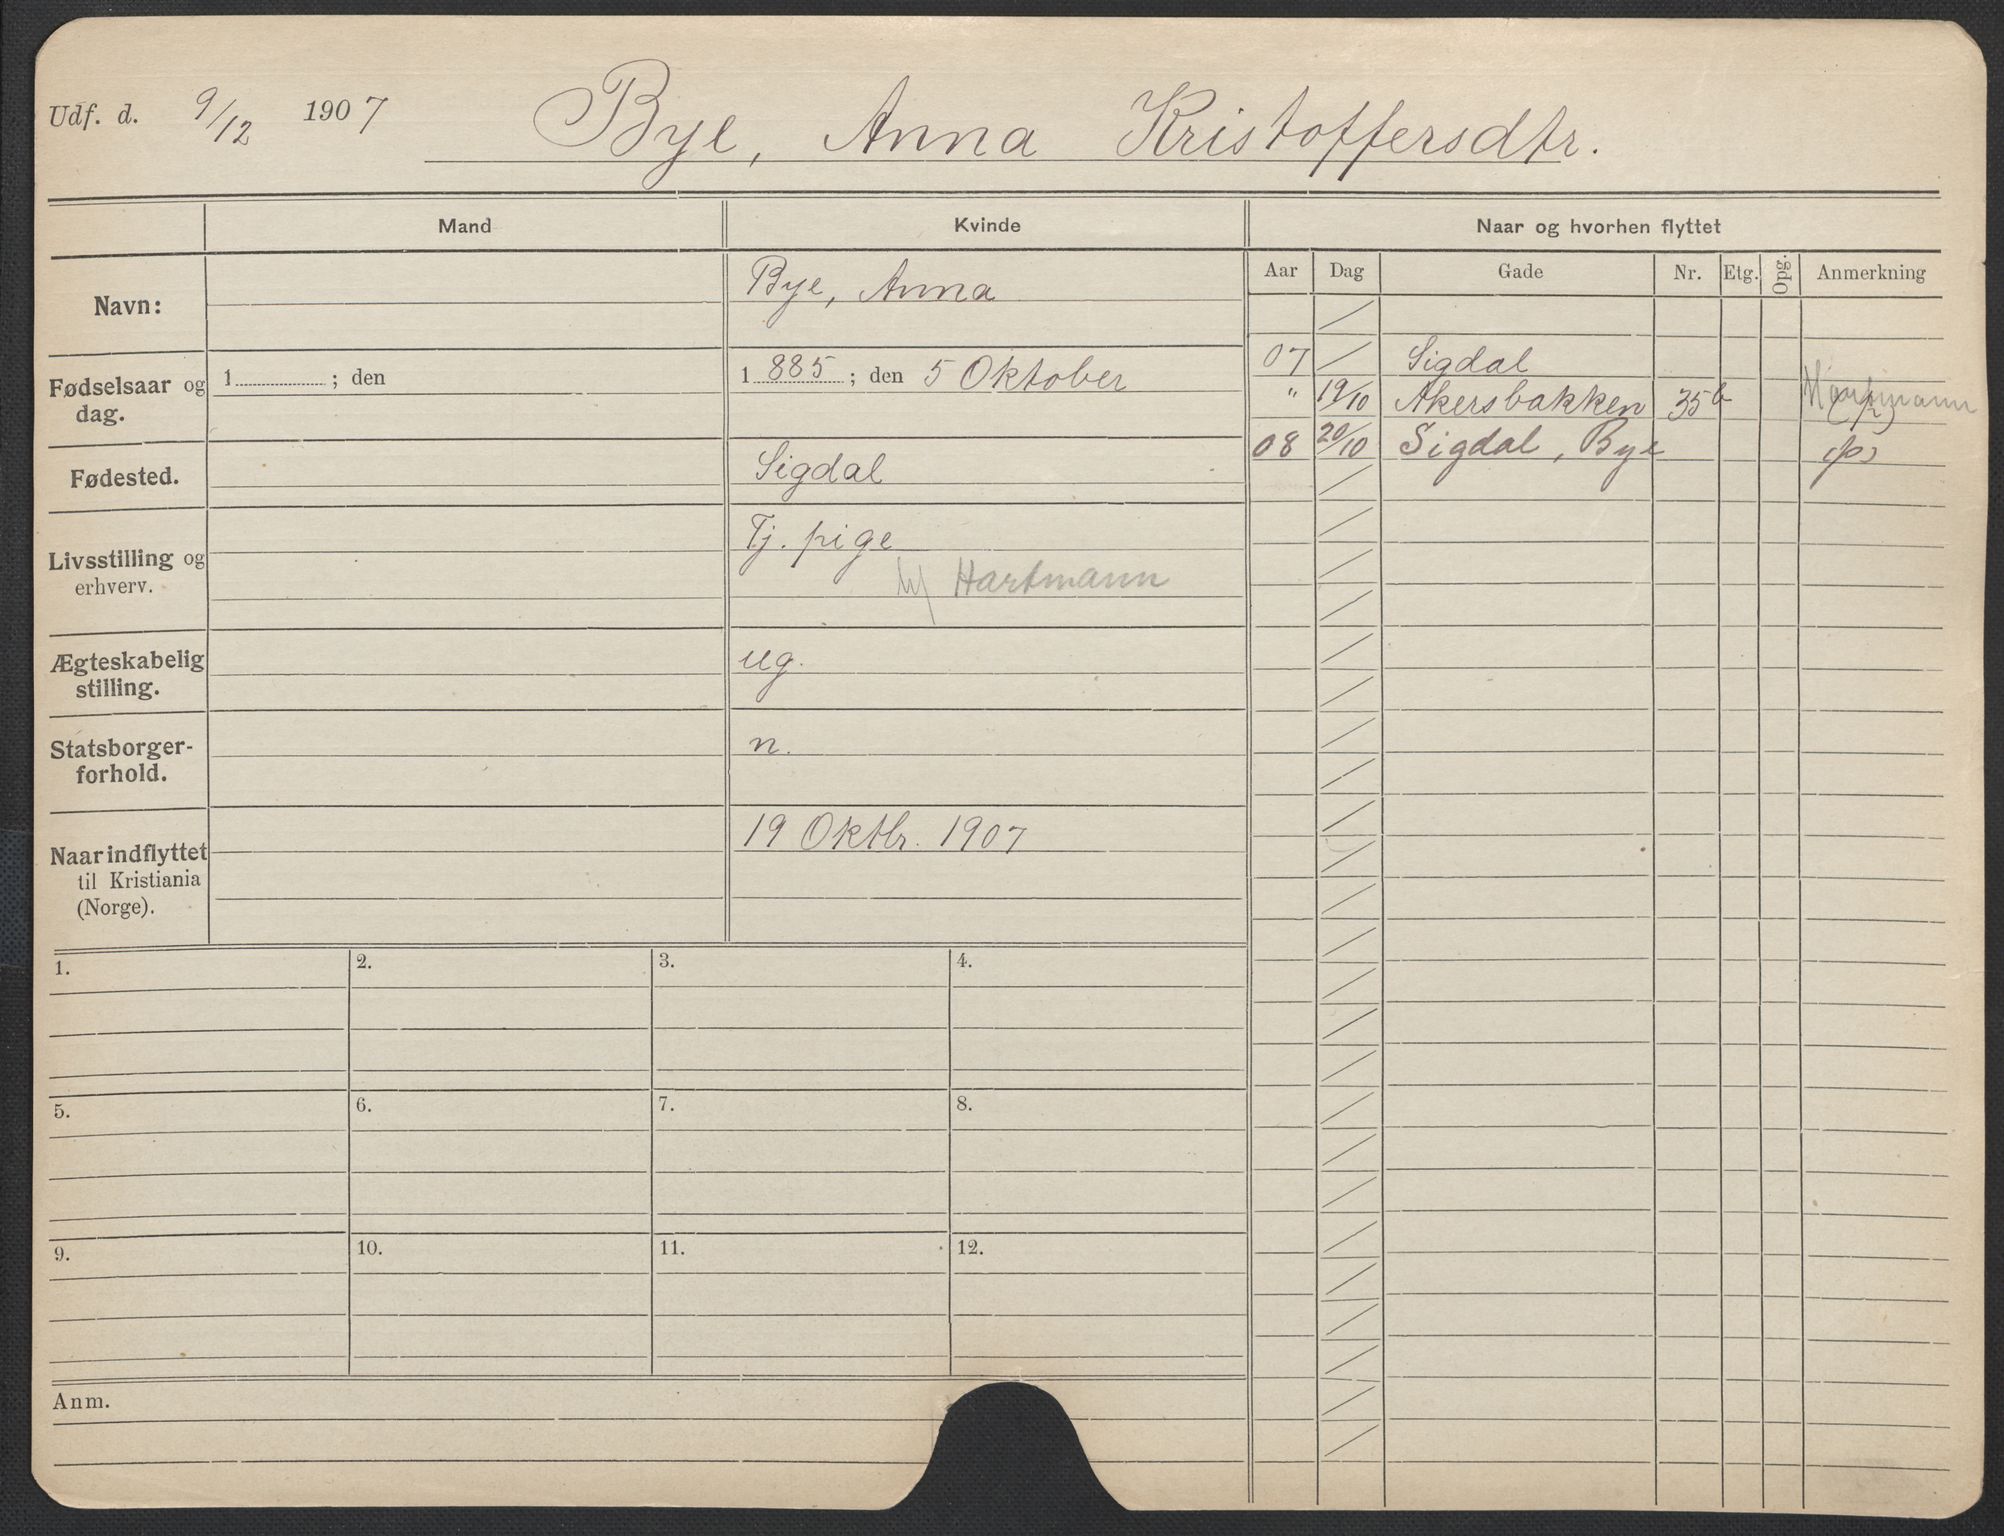 Udf. d. 9/12 1907 Bye, Anna Kristoffersdtr.
Mand Kvinde Naar og hvorhen flyttet
Aar Dag Gade Nr. Etg. Opg. Anmerkning
Navn: Bye, Anna
Fødselsaar og dag. 1 ; den 1 885 ; den 5 Oktober
Fødested. Sigdal
Livsstilling og erhverv. Tj. pige
Hartmann
Ægteskabelig stilling. ug.
Statsborger-forhold. n.
Naar indflyttet til Kristiania (Norge). 19 Oktbr. 1907
07 / Sigdal
" 19/10 Akersbakken 35b Hartmann (p)
08 20/10 Sigdal, Bye (p)
1. 2. 3. 4.
5. 6. 7. 8.
9. 10. 11. 12.
Anm.